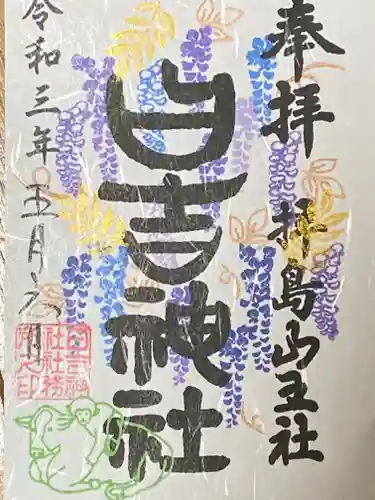 奉拝
拝島山王社
日吉神社
令和三年五月六日
日吉神
社社務
所之印